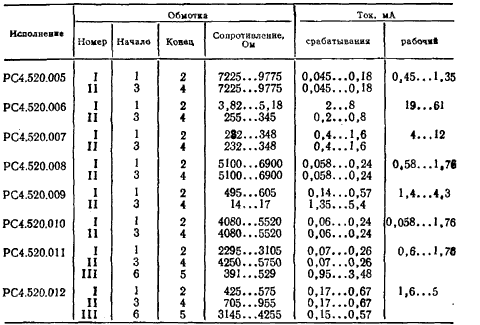 Исполнение Обмотка Ток, мА
Номер Начало Конец Сопротивление, Ом срабатывания рабочий
РС4.520.005 I 1 2 7225...9775 0,045...0,18 0,45...1,35
II 3 4 7225...9775 0,045...0,18
РС4.520.006 I 1 2 3,82...5,18 2...8 19...61
II 3 4 255...345 0,2...0,8
РС4.520.007 I 1 2 232...348 0,4...1,6 4...12
II 3 4 232...348 0,4...1,6
РС4.520.008 I 1 2 5100...6900 0,058...0,24 0,58...1,76
II 3 4 5100...6900 0,058...0,24
РС4.520.009 I 1 2 495...605 0,14...0,57 1,4...4,3
II 3 4 14...17 1,35...5,4
РС4.520.010 I 1 2 4080...5520 0,06...0,24 0,058...1,76
II 3 4 4080...5520 0,06...0,24
РС4.520.011 I 1 2 2295...3105 0,07...0,26 0,6...1,78
II 3 4 4250...5750 0,07...0,26
III 6 5 391...529 0,95...3,48
РС4.520.012 I 1 2 425...575 0,17...0,67 1,6...5
II 3 4 705...955 0,17...0,67
III 6 5 3145...4255 0,15...0,57